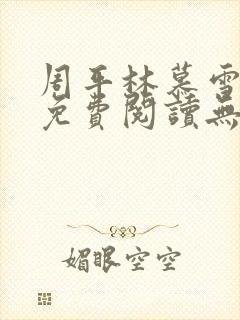 周平林慕雪
免費閱讀無
媚眼空空